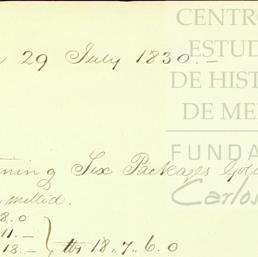 CENTRO
ESTUD
29 July 1830.-
DE HIST
DE ME
FUNDA
ning Six Packages Gol
Carlos
mitted.
8.0
11.-
18.- 18.7.6.0